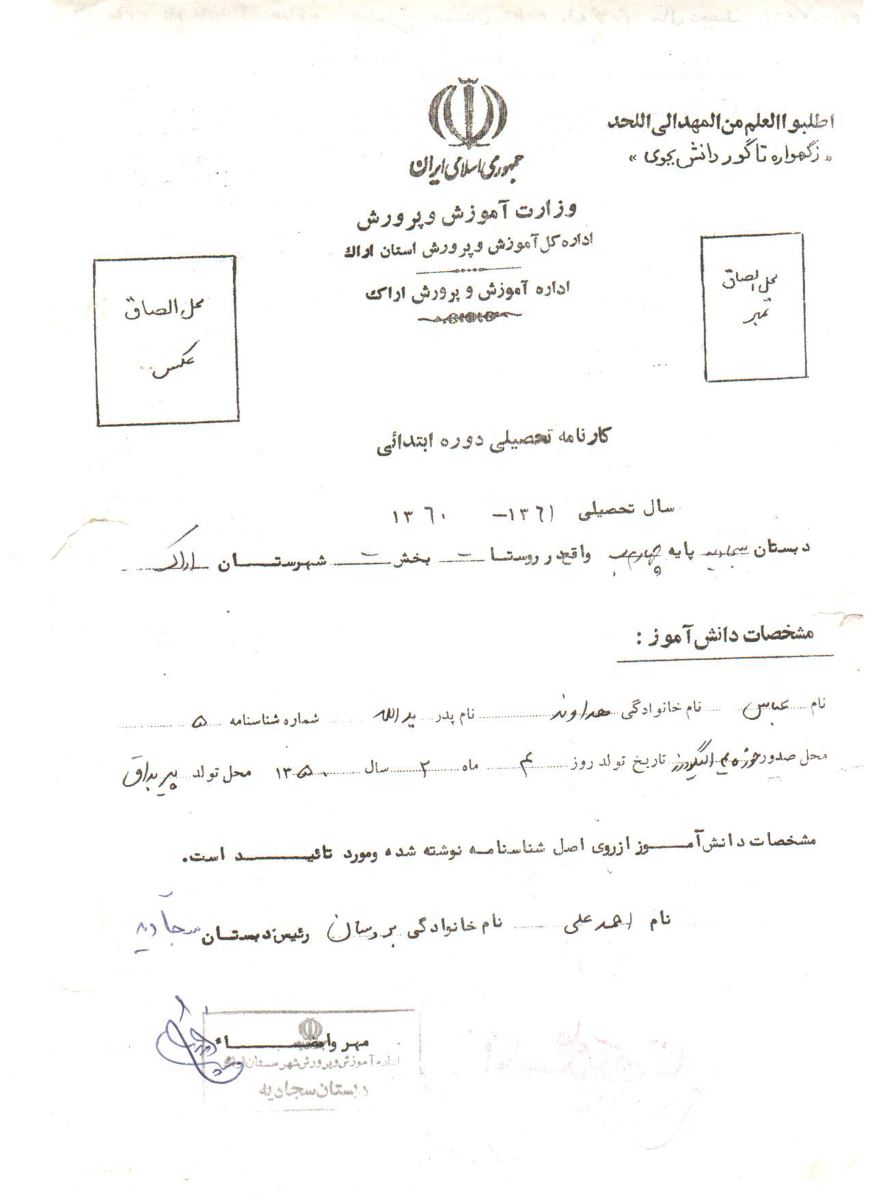 اطلبوا العلم من المهد الی اللحد
« زگهواره تا گور دانش بجوی »
جمهوری اسلامی ایران
وزارت آموزش و پرورش
اداره کل آموزش و پرورش استان اراک
اداره آموزش و پرورش اراک
محل الصاق
تمبر
محل الصاق
عکس
کارنامه تحصیلی دوره ابتدائی
سال تحصیلی ۱۳۶۱ - ۱۳۶۰
دبستان سجادیه پایه چهارم واقع در روستا - بخش - شهرستان اراک
مشخصات دانش آموز :
نام عباس نام خانوادگی هداوند نام پدر یدالله شماره شناسنامه ۵
محل صدور حوزه ۴ الیگودرز تاریخ تولد روز ۴ ماه ۲ سال ۱۳۵۰ محل تولد
مشخصات دانش آموز از روی اصل شناسنامه نوشته شده و مورد تائید است.
نام احمد علی نام خانوادگی رئیس دبستان سجادیه
مهر و امضاء
اداره آموزش و پرورش شهرستان اراک
دبستان سجادیه